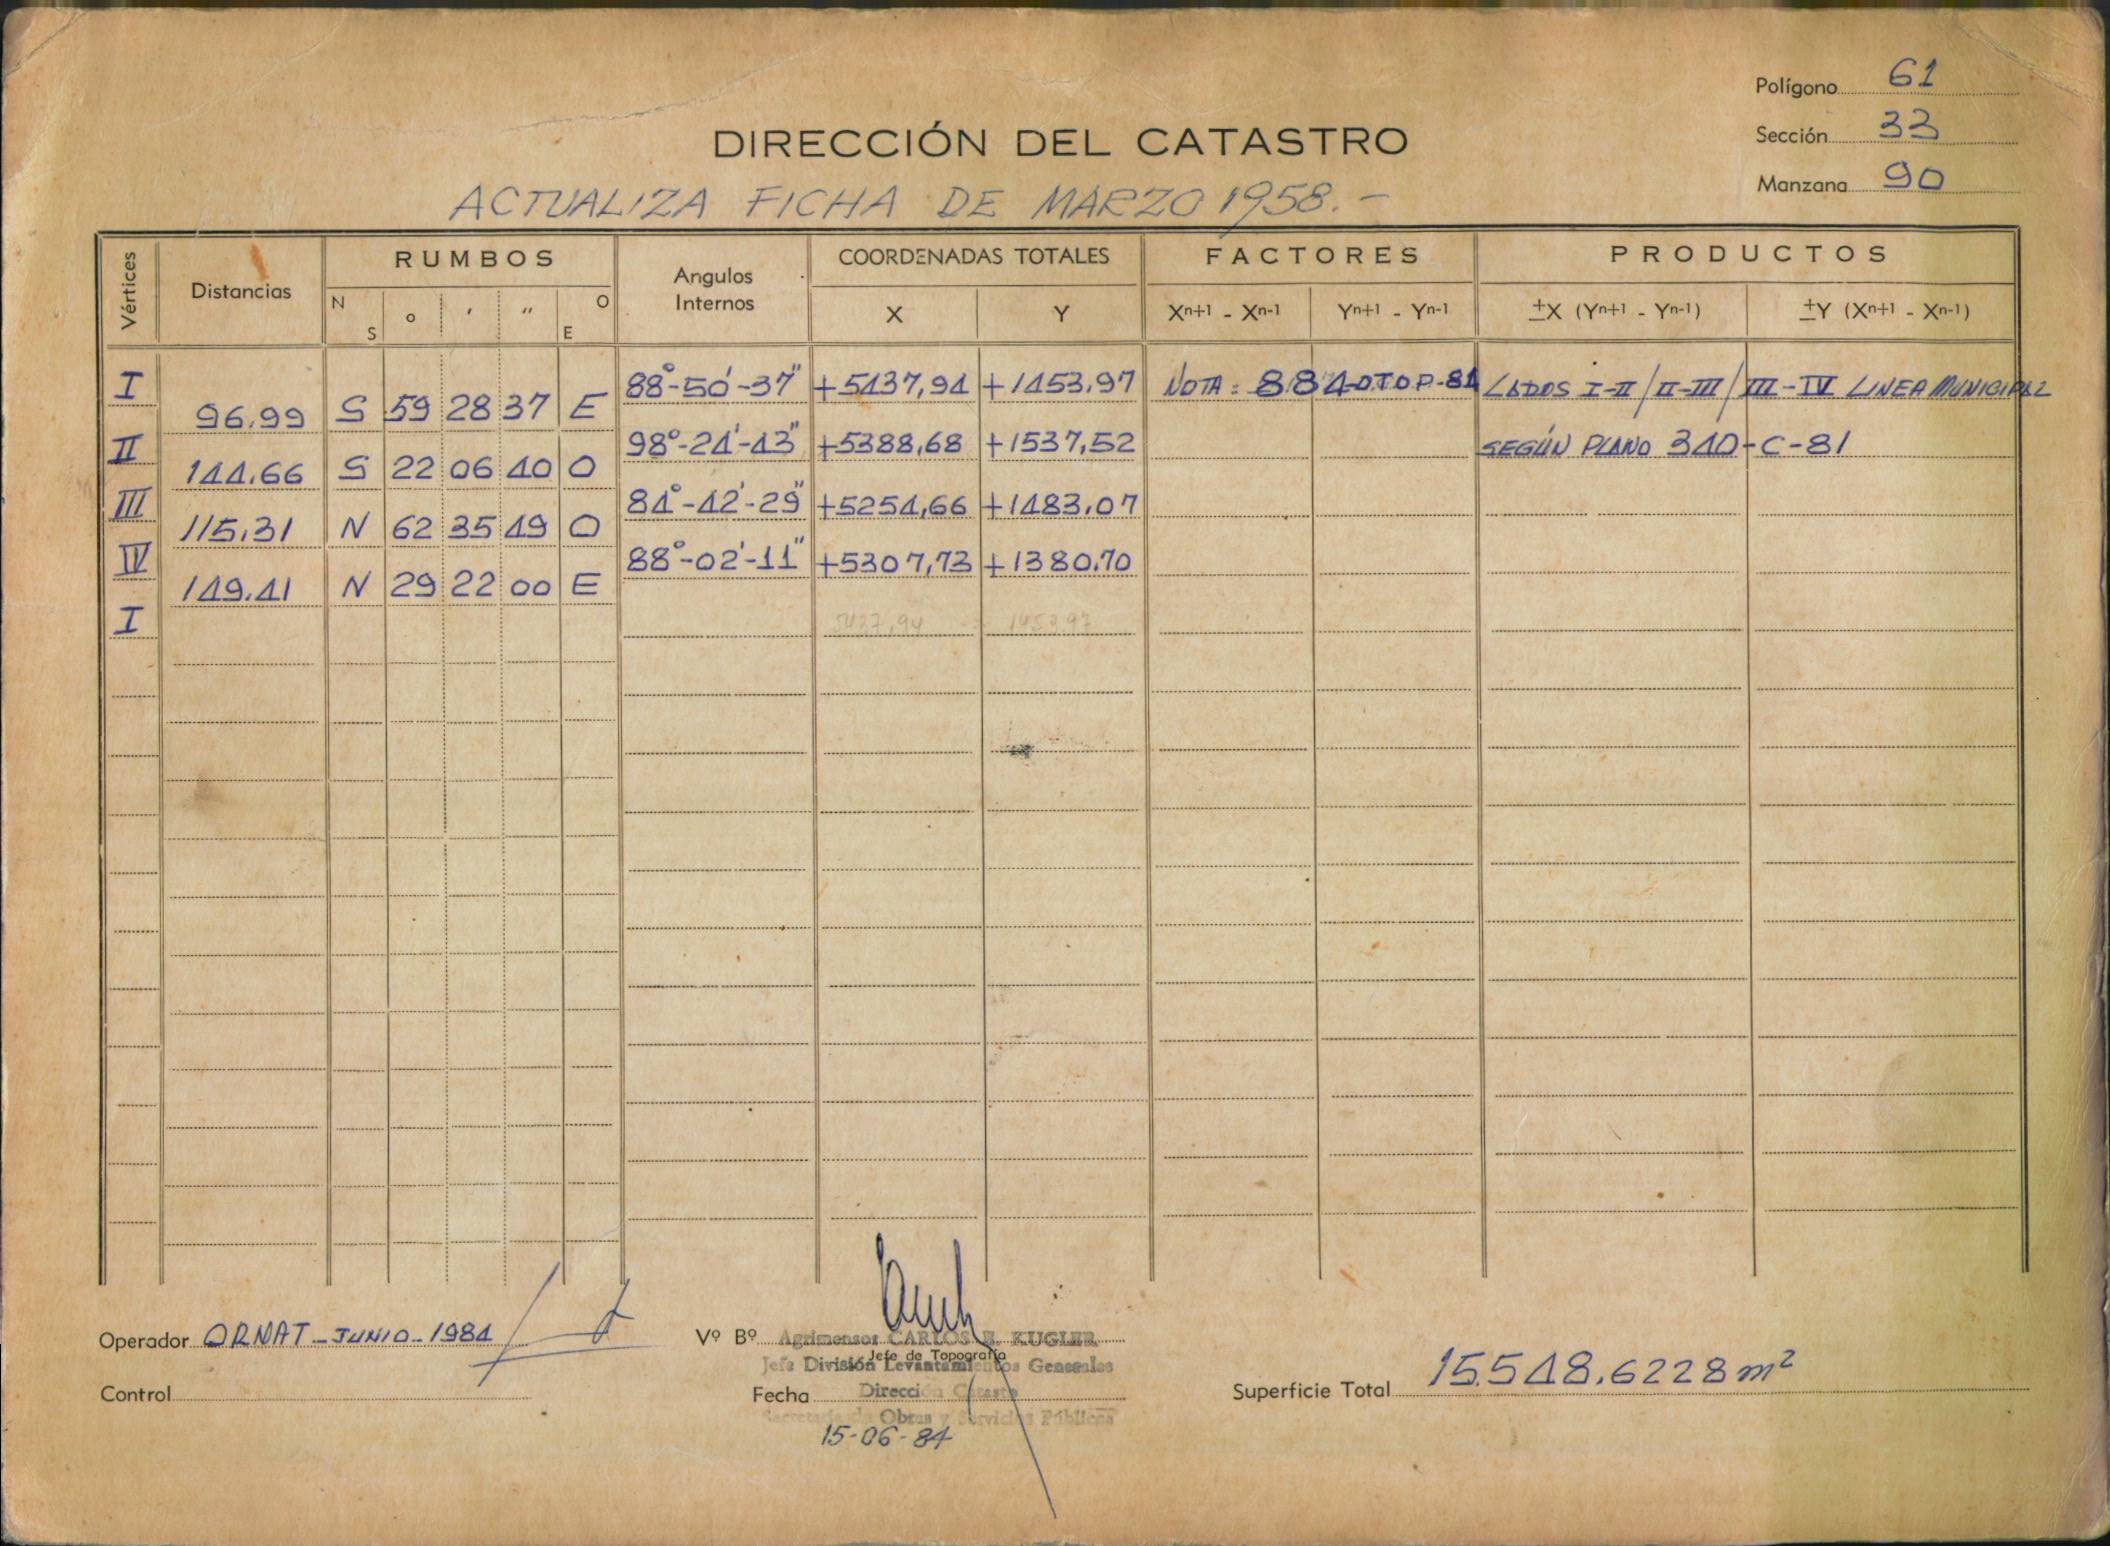 Polígono 61
Sección 33
Manzana 90
DIRECCIÓN DEL CATASTRO
ACTUALIZA FICHA DE MARZO 1958.-
Vértices Distancias RUMBOS Angulos Internos COORDENADAS TOTALES FACTORES PRODUCTOS
N S o ' " O E X Y Xn+1 - Xn-1 Yn+1 - Yn-1 ±X (Yn+1 - Yn-1) ±Y (Xn+1 - Xn-1)
I 88°-50'-37" +5437,94 +1453,97 NOTA: 884-DTOP-84 LADOS I-II/II-III/III-IV LINEA MUNICIPAL
96.99 S 59 28 37 E
II 98°-24'-43" +5388,68 +1537,52 SEGÚN PLANO 340-C-81
144.66 S 22 06 40 O
III 84°-42'-29" +5254,66 +1483,07
115,31 N 62 35 49 O
IV 88°-02'-11" +5307,73 +1380,70
149.41 N 29 22 00 E
I 5437,94 1453,97
Operador ORNAT-JUNIO-1984
Vº Bº Agrimensor CARLOS E. KUGLER
Jefe de Topografía
Jefe División Levantamientos Generales
Control
Fecha Dirección Catasto
Secretaría de Obras y Servicios Públicos
15-06-84
Superficie Total 15.548,6228 m²